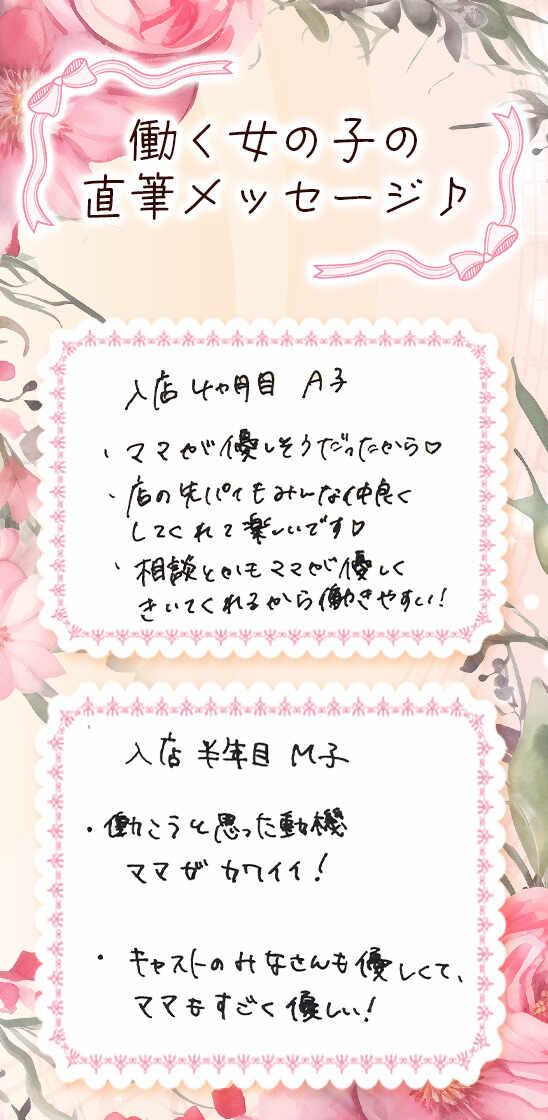 働く女の子の
直筆メッセージ♪
入店4ヶ月目 A子
・ママが優しそうだったから♡
・店の先パイもみんな仲良く
してくれて楽しいです♡
・相談とかもママが優しく
きいてくれるから働きやすい!
入店半年目 M子
・働こうと思った動機
ママがカワイイ!
・キャストのみなさんも優しくて、
ママもすごく優しい!